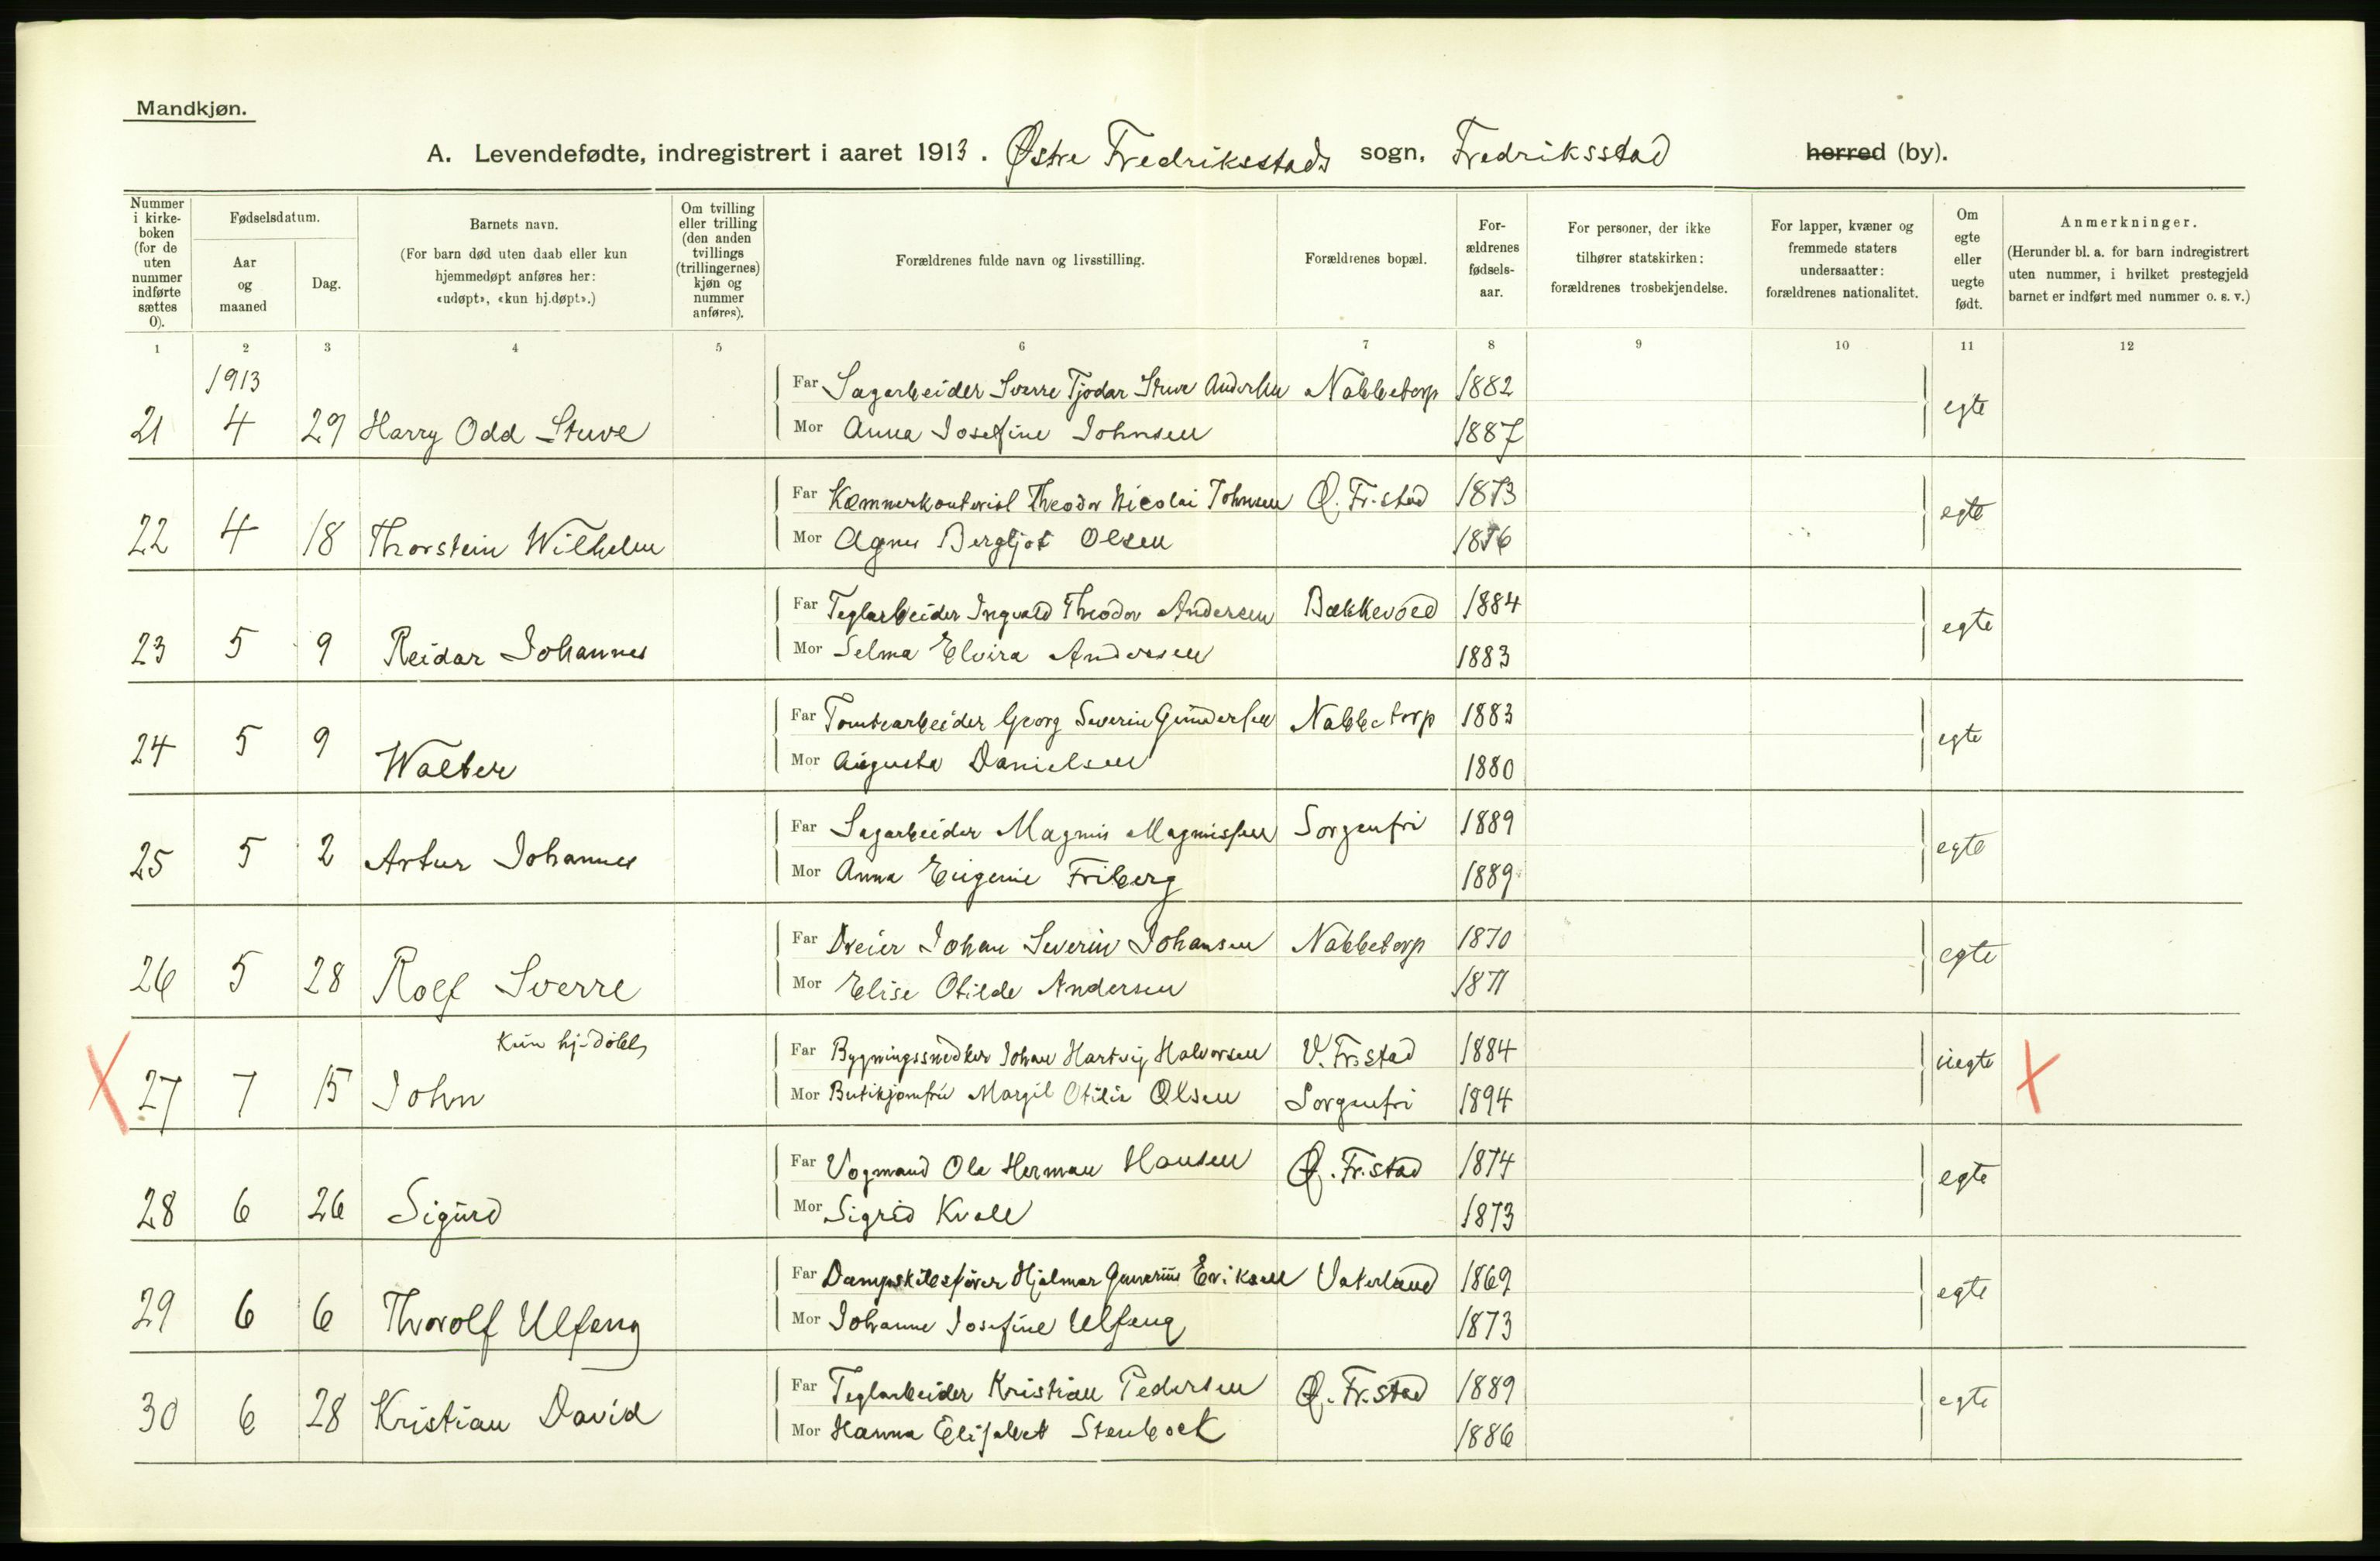 Mandkjøn.
A. Levendefødte, indregistrert i aaret 1913. Østre Fredriksstads sogn, Fredriksstad herred (by).
Nummer i kirkeboken (for de uten nummer indførte sættes 0).
Fødselsdatum.
Aar og maaned
Dag.
Barnets navn.
(For barn død uten daab eller kun hjemmedøpt anføres her: «udøpt», «kun hj.døpt».)
Om tvilling eller trilling (den anden tvillings (trillingernes) kjøn og nummer anføres).
Forældrenes fulde navn og livsstilling.
Forældrenes bopæl.
Forældrenes fødselsaar.
For personer, der ikke tilhører statskirken: forældrenes trosbekjendelse.
For lapper, kvæner og fremmede staters undersaatter: forældrenes nationalitet.
Om egte eller uegte født.
Anmerkninger.
(Herunder bl. a. for barn indregistrert uten nummer, i hvilket prestegjeld barnet er indført med nummer o. s. v.)
1 2 3 4 5 6 7 8 9 10 11 12
1913
Far Sagarbeider Sverre Tjodar Stuve Andersen Nabbetorp 1882
21 4 29 Harry Odd Stuve egte
Mor Anna Josefine Johnsen 1887
Far Kæmnerkontorist Theodor Nicolai Johnsen Ø. Fr.stad 1873
22 4 18 Thorstein Wilhelm egte
Mor Agnes Bergljot Olsen 1876
Far Teglarbeider Ingvald Theodor Andersen Bækkevold 1884
23 5 9 Reidar Johannes egte
Mor Selma Elvira Andersen 1883
Far Tomtearbeider Georg Severin Gundersen Nabbetorp 1883
24 5 9 Walter egte
Mor Augusta Danielsen 1880
Far Sagarbeider Magnus Magnussen Sorgenfri 1889
25 5 2 Artur Johannes egte
Mor Anna Eugenie Friberg 1889
Far Dreier Johan Severin Johansen Nabbetorp 1870
26 5 28 Rolf Sverre egte
Mor Elise Otilde Andersen 1871
Kun hj.døbt
Far Bygningssnedker Johan Hartvig Halvorsen V. Fr.stad 1884
X 27 7 15 John uegte X
Mor Butikjomfru Margit Otilie Olsen Sorgenfri 1894
Far Vogmand Ole Herman Hansen Ø. Fr.stad 1874
28 6 26 Sigurd egte
Mor Sigrid Kvale 1873
Far Dampskibsfører Hjalmar Gunerius Eriksen Vaterland 1869
29 6 6 Thorolf Ulfeng egte
Mor Johanne Josefine Ulfeng 1873
Far Teglarbeider Kristian Pedersen Ø. Fr.stad 1889
30 6 28 Kristian David egte
Mor Hanna Elisabet Stenbock 1886